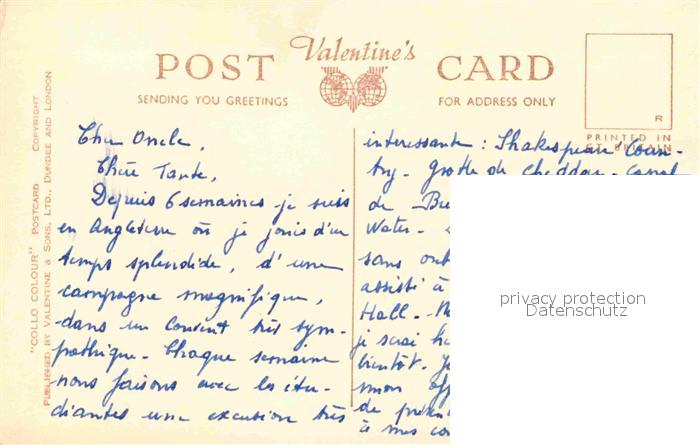 Valentine's
POST CARD
SENDING YOU GREETINGS
FOR ADDRESS ONLY
R
PRINTED IN
GT. BRITAIN
"COLLO COLOUR" POSTCARD COPYRIGHT
PUBLISHED BY VALENTINE & SONS, LTD., DUNDEE AND LONDON
Cher Oncle,
Chère Tante,
Depuis 6 semaines je suis
en Angleterre où je jouis d'un
temps splendide, d'une
campagne magnifique,
dans un Couvent très sym-
pathique. Chaque semaine
nous faisons avec les étu-
diantes une excursion très
interessante : Shakespeare Coun-
try - Grotte de Cheddar - Canal
de
Water -
sans
assisté à
Hall.
je serai
bientôt.
mon
de
à mes
privacy protection
Datenschutz